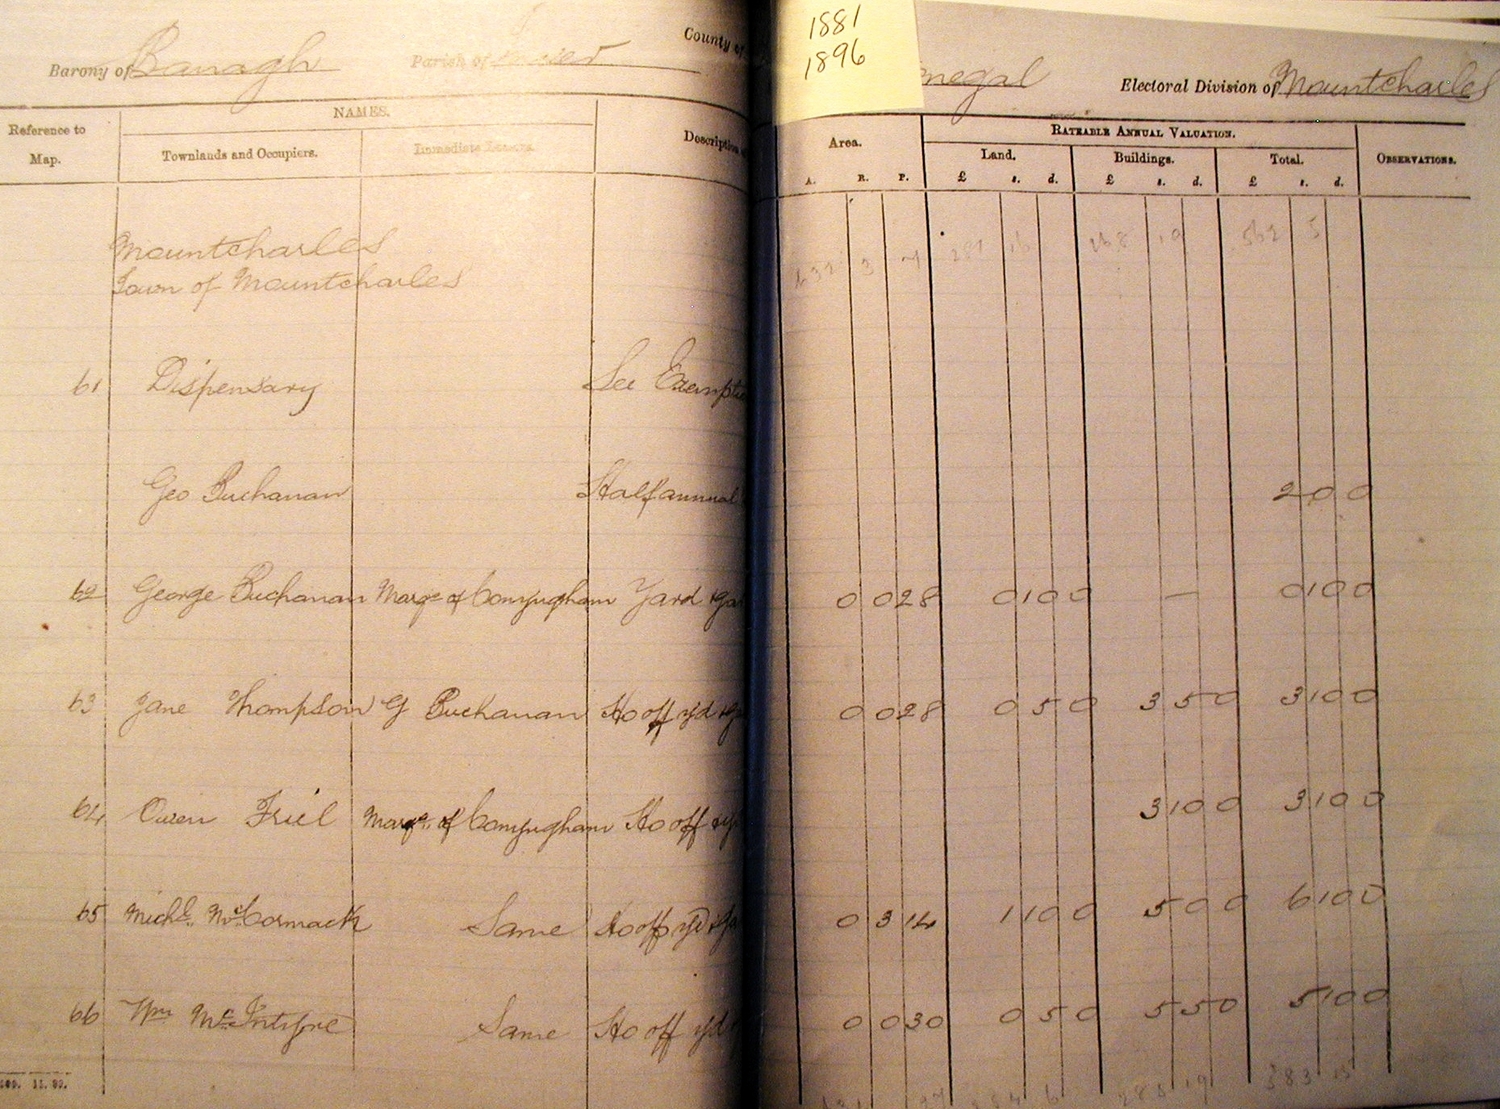 1881
1896
Barony of Banagh Parish of Inver County of
negal Electoral Division of Mountcharles
Reference to Map. NAMES. Townlands and Occupiers. Immediate Lessors. Description
Area. A. R. P. RATEABLE ANNUAL VALUATION. Land. £ s. d. Buildings. £ s. d. Total. £ s. d. OBSERVATIONS.
Mountcharles
Town of Mountcharles
61 Dispensary See Exempti
Geo Buchanan Half annual 2 0 0
62 George Buchanan Marqs of Conyngham Yard & ga 0 0 28 0 10 0 — 0 10 0
63 Jane Thompson G Buchanan Ho off yd & 0 0 28 0 5 0 3 5 0 3 10 0
64 Owen Friel Marqs. of Conyngham Ho off & y 3 10 0 3 10 0
65 Michl. McCormack Same Ho off yd & Ga 0 3 14 1 10 0 5 0 0 6 10 0
66 Wm McIntyre Same Ho off yd 0 0 30 0 5 0 5 5 0 5 10 0